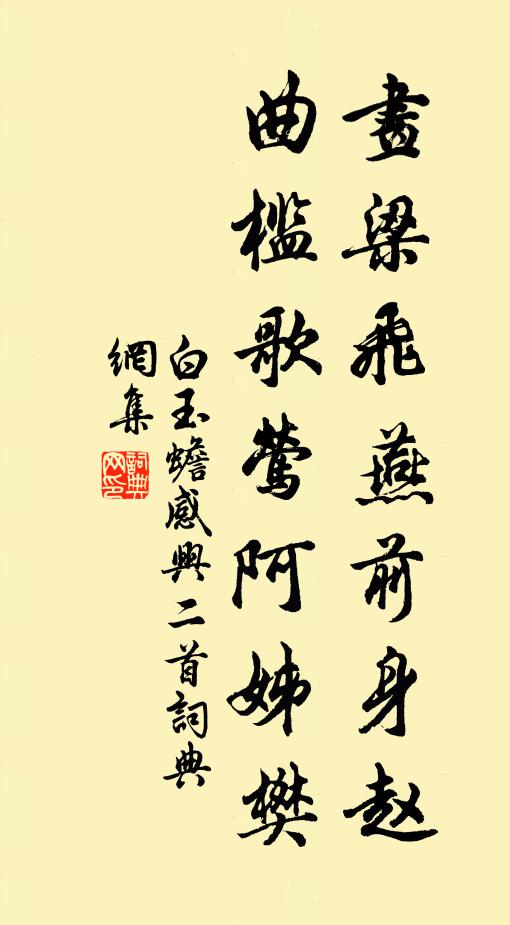 畫梁飛燕前身赵
曲檻歌莺阿姊樊
白玉蟾感興二首詞典
網集
詞典網印